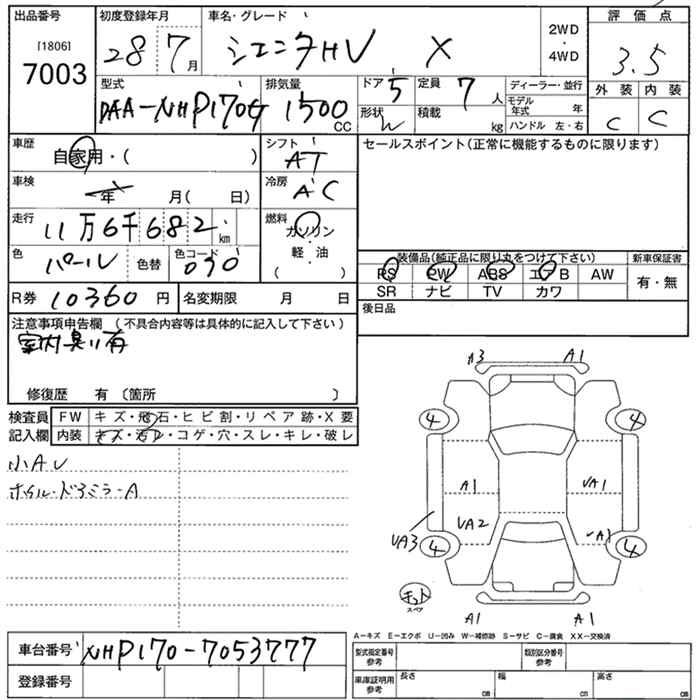 出品番号
[1806]
7003
初度登録年月
28 7月
車名・グレード
シエンタHV X
2WD
・
4WD
評価点
3.5
外装 内装
C C
型式
DAA-NHP170G
排気量
1500 CC
ドア 5
形状
定員 7人
積載 kg
ディーラー・並行
モデル年式 年
ハンドル 左・右
車歴
自家用・( )
シフト
AT
車検
年 月( 日)
冷房
AC
走行
11万6千682 km
燃料
ガソリン
軽・油
( )
色
パール
色替
色コード
070
R券 10360円
名変期限 月 日
セールスポイント(正常に機能するものに限ります)
装備品(純正品に限り丸をつけて下さい)
新車保証書
PS PW ABS エアB AW
SR ナビ TV カワ
有・無
後日品
注意事項申告欄(不具合内容等は具体的に記入して下さい)
室内臭い有
修復歴 有 〔箇所 〕
検査員記入欄
FW キズ・飛石・ヒビ割・リペア跡・X要
内装 キズ・汚レ・コゲ・穴・スレ・キレ・破レ
小AU
ホイル・ドアミラーA
A3 A1
4 4
A1 UA1
UA2 UA1
UA3 4 4
キット
スペア
A1 A1
A−キズ E−エクボ U−凹み W−補修跡 S−サビ C−腐食 XX−交換済
車台番号 NHP170-7053777
登録番号
型式指定番号
参考
類別区分番号
参考
車庫証明用
参考
長さ cm
幅 cm
高さ cm